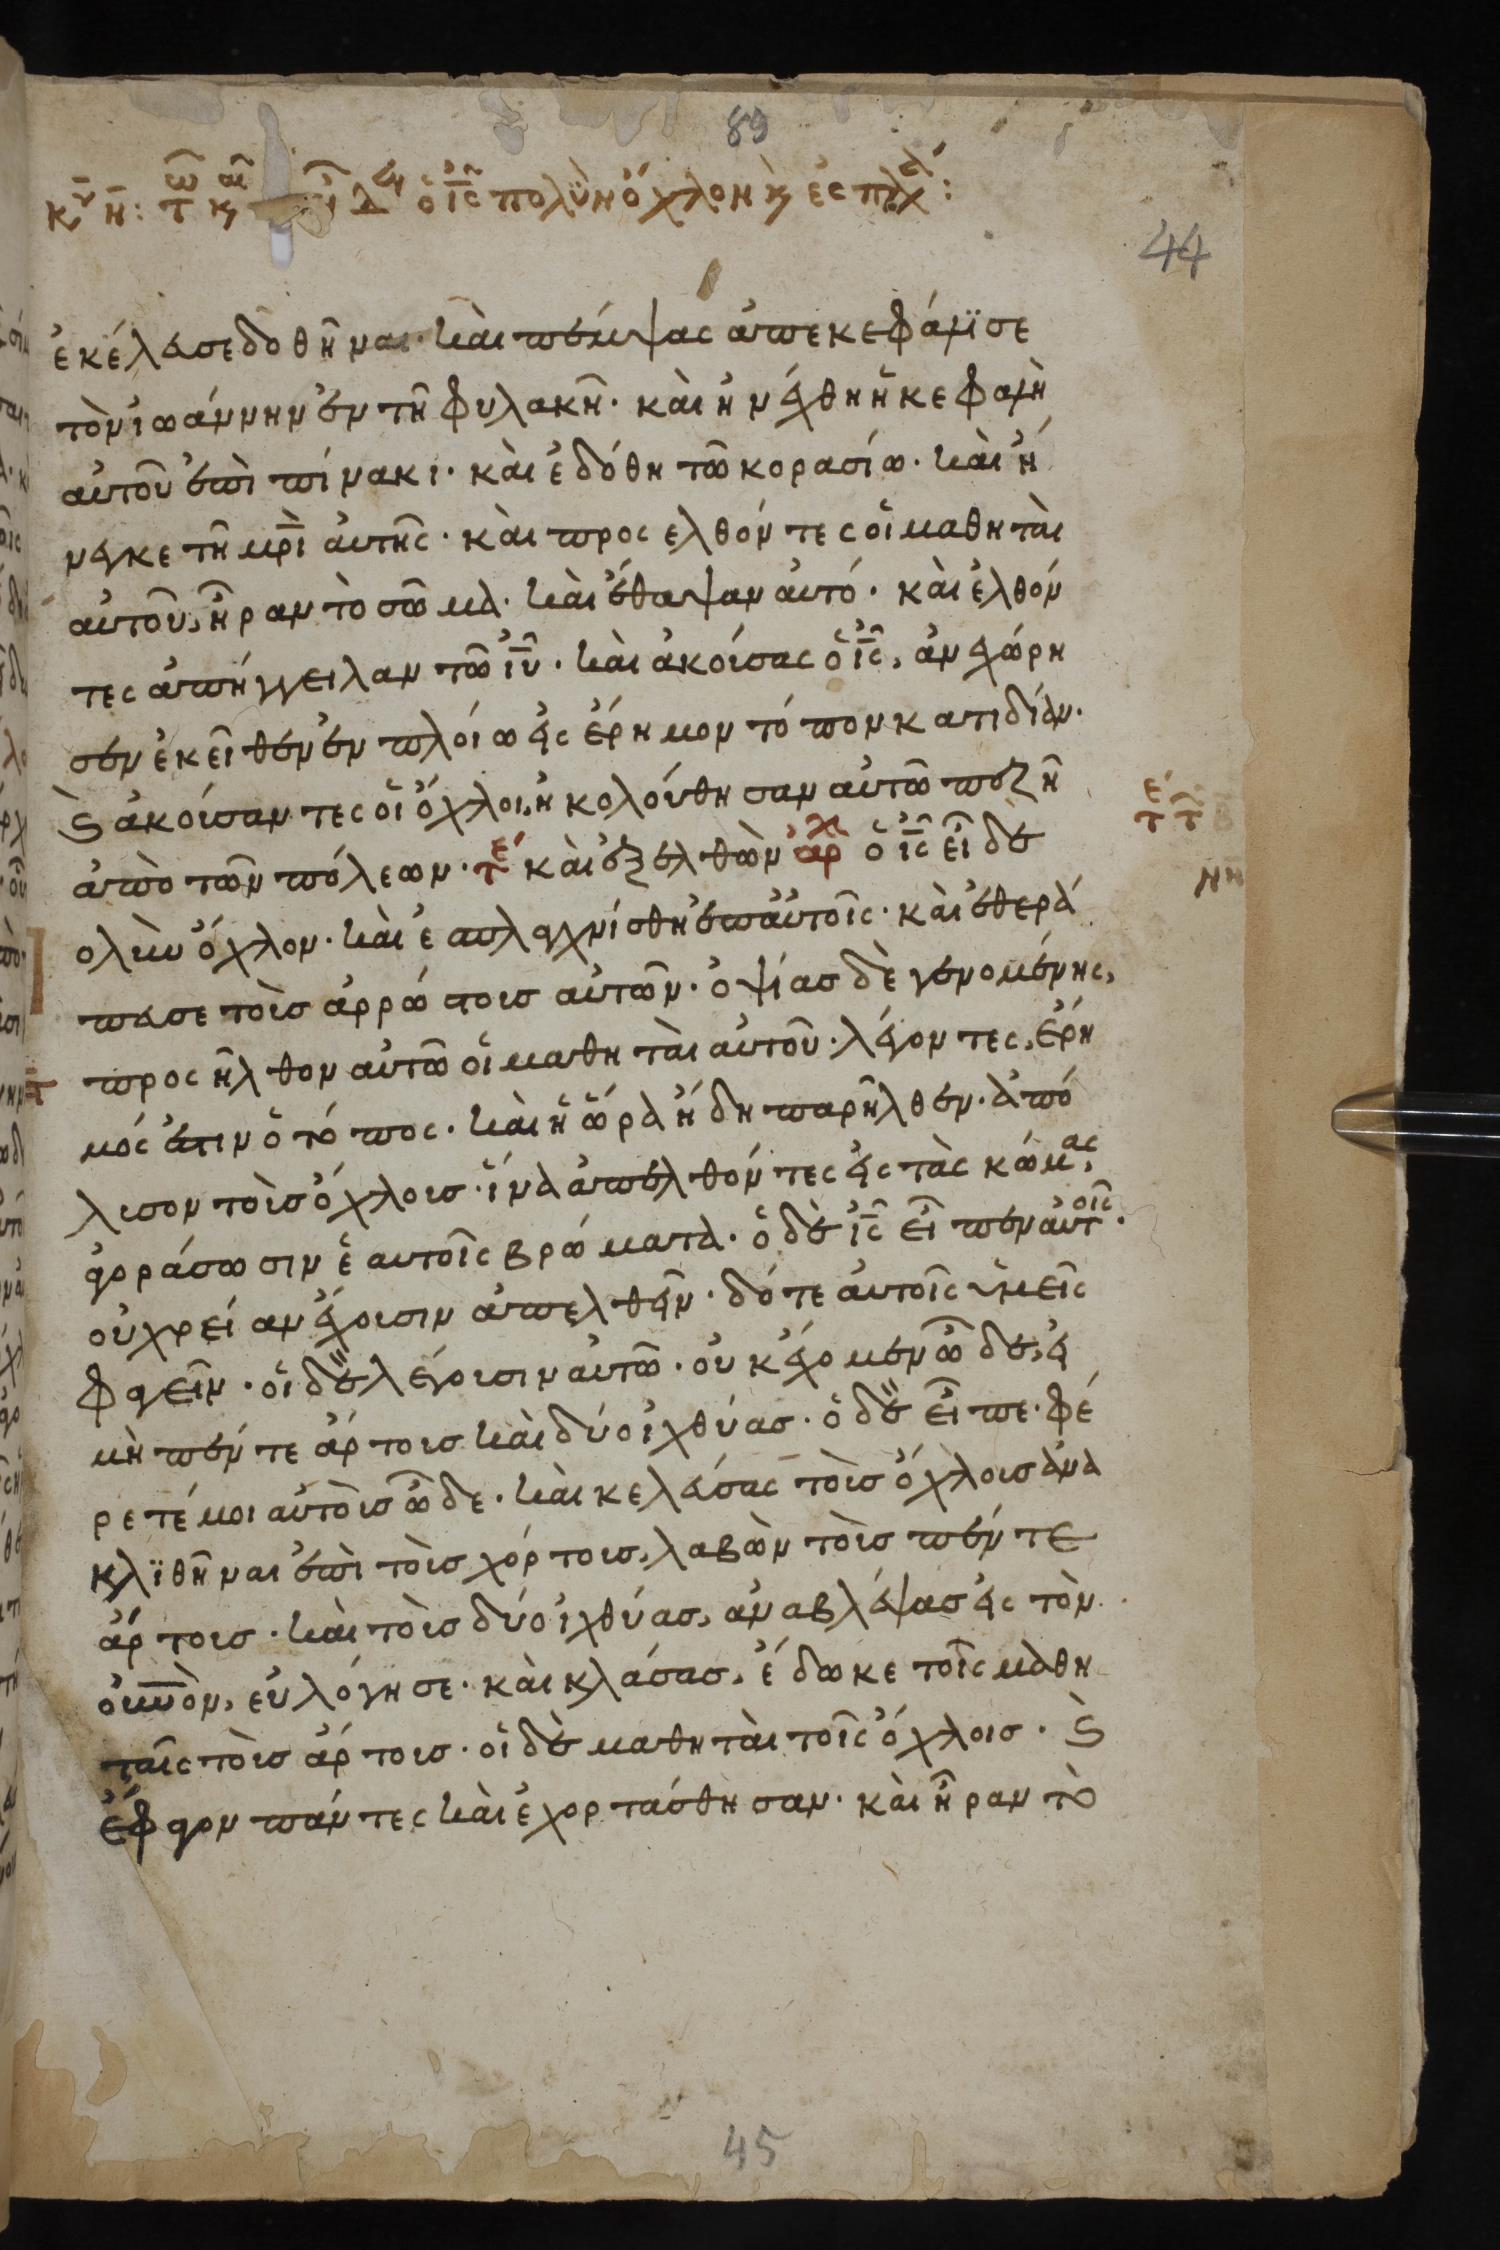 89
44
ὁ ις πολὺν ὄχλον κ ἐσπλχ:
ἐκέλευσε δοθῆναι· καὶ πέμψας ἀπεκεφάλϊσε
τὸν ἰωάννην ἐν τῆ φυλακῆ· καὶ ἠνέχθη ἡ κεφαλὴ
αὐτοῦ ἐπὶ πίνακι· καὶ ἐδόθη τῶ κορασίω· καὶ ἤ
νεγκε τῆ μρὶ αὐτῆς· καὶ προσελθόντες οἱ μαθηταὶ
αὐτοῦ, ἦραν τὸ σῶμα· καὶ ἔθαψαν αὐτό· καὶ ἐλθόν
τες ἀπήγγειλαν τῶ ιυ· καὶ ἀκούσας ὁ ις, ἀνεχώρη
σεν ἐκεῖθεν ἐν πλοίω εἰς ἔρημον τόπον κατιδίαν·
Ϛ ἀκούσαντες οἱ ὄχλοι, ἠκολούθησαν αὐτῶ πεζῆ
ἀπὸ τῶν πόλεων· τε καὶ ἐξελθὼν αρχ ὁ ις εἶδε
ολὺν ὄχλον· καὶ ἐσπλαγχνίσθη ἐπαὐτοῖς· καὶ ἐθερά
πευσε τοὺσ ἀρρώστουσ αὐτῶν· ὀψίασ δὲ γενομένης,
προσῆλθον αὐτῶ οἱ μαθηταὶ αὐτοῦ· λέγοντες, ἔρη
μός ἐστιν ὁ τόπος· καὶ ἡ ὥρα ἤδη παρῆλθεν· ἀπό
λυσον τοὺσ ὄχλουσ· ἵνα ἀπελθόντες εἰς τὰς κώμας,
ἀγοράσωσιν ἑαυτοῖς βρώματα· ὁ δὲ ις εἶπεν αὐτοῖς·
οὐ χρείαν ἔχουσιν ἀπελθεῖν· δότε αὐτοῖς ὑμεῖς
φαγεῖν· οἱ δὲ λέγουσιν αὐτῶ· οὐκ ἔχομεν ὧδε, εἰ
μὴ πέντε ἄρτουσ καὶ δύο ἰχθύασ· ὁ δὲ εἶπε· φέ
ρετέ μοι αὐτοὺσ ὧδε· καὶ κελεύσας τοὺσ ὄχλουσ ἀνα
κλϊθῆναι ἐπὶ τοὺσ χόρτουσ, λαβὼν τοὺσ πέντε
ἄρτουσ· καὶ τοὺσ δύο ἰχθύασ, ἀναβλέψασ εἰς τὸν
οὐνὸν, εὐλόγησε· καὶ κλάσασ, ἔδωκε τοῖς μαθη
ταῖς τοὺσ ἄρτουσ· οἱ δὲ μαθηταὶ τοῖς ὄχλοισ· Ϛ
ἔφαγον πάντες καὶ ἐχορτάσθησαν· καὶ ἦραν τὸ
45